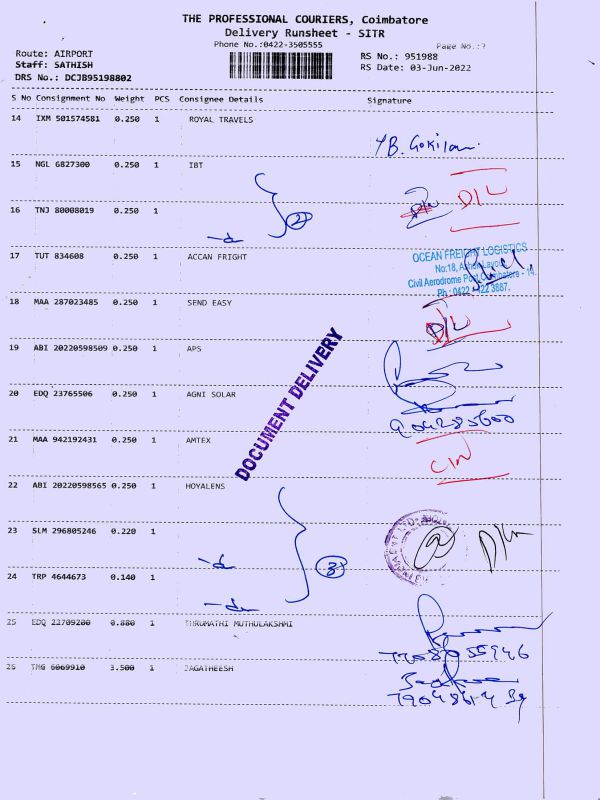 THE PROFESSIONAL COURIERS, Coimbatore
Delivery Runsheet - SITR
Phone No.:0422-3505555
Page No.:?
Route: AIRPORT
RS No.: 951988
Staff: SATHISH
RS Date: 03-Jun-2022
DRS No.: DCJB95198802
S No Consignment No Weight PCS Consignee Details Signature
14 IXM 501574581 0.250 1 ROYAL TRAVELS
15 NGL 6827300 0.250 1 IBT
D/L
16 TNJ 80008019 0.250 1
2
17 TUT 834608 0.250 1 ACCAN FREIGHT
OCEAN FREIGHT LOGISTICS
No:18,
Civil Aerodrome Post, Coimbatore - 14.
18 MAA 287023485 0.250 1 SEND EASY
D/L
19 ABI 20220598509 0.250 1 APS
20 EDQ 23765506 0.250 1 AGNI SOLAR
DOCUMENT DELIVERY
21 MAA 942192431 0.250 1 AMTEX
22 ABI 20220598565 0.250 1 HOYALENS
23 SLM 296805246 0.220 1
3
24 TRP 4644673 0.140 1
25 EDQ 23709200 0.880 1 THRUMATHI MUTHULAKSHMI
26 TMG 6069910 3.500 1 JAGATHEESH